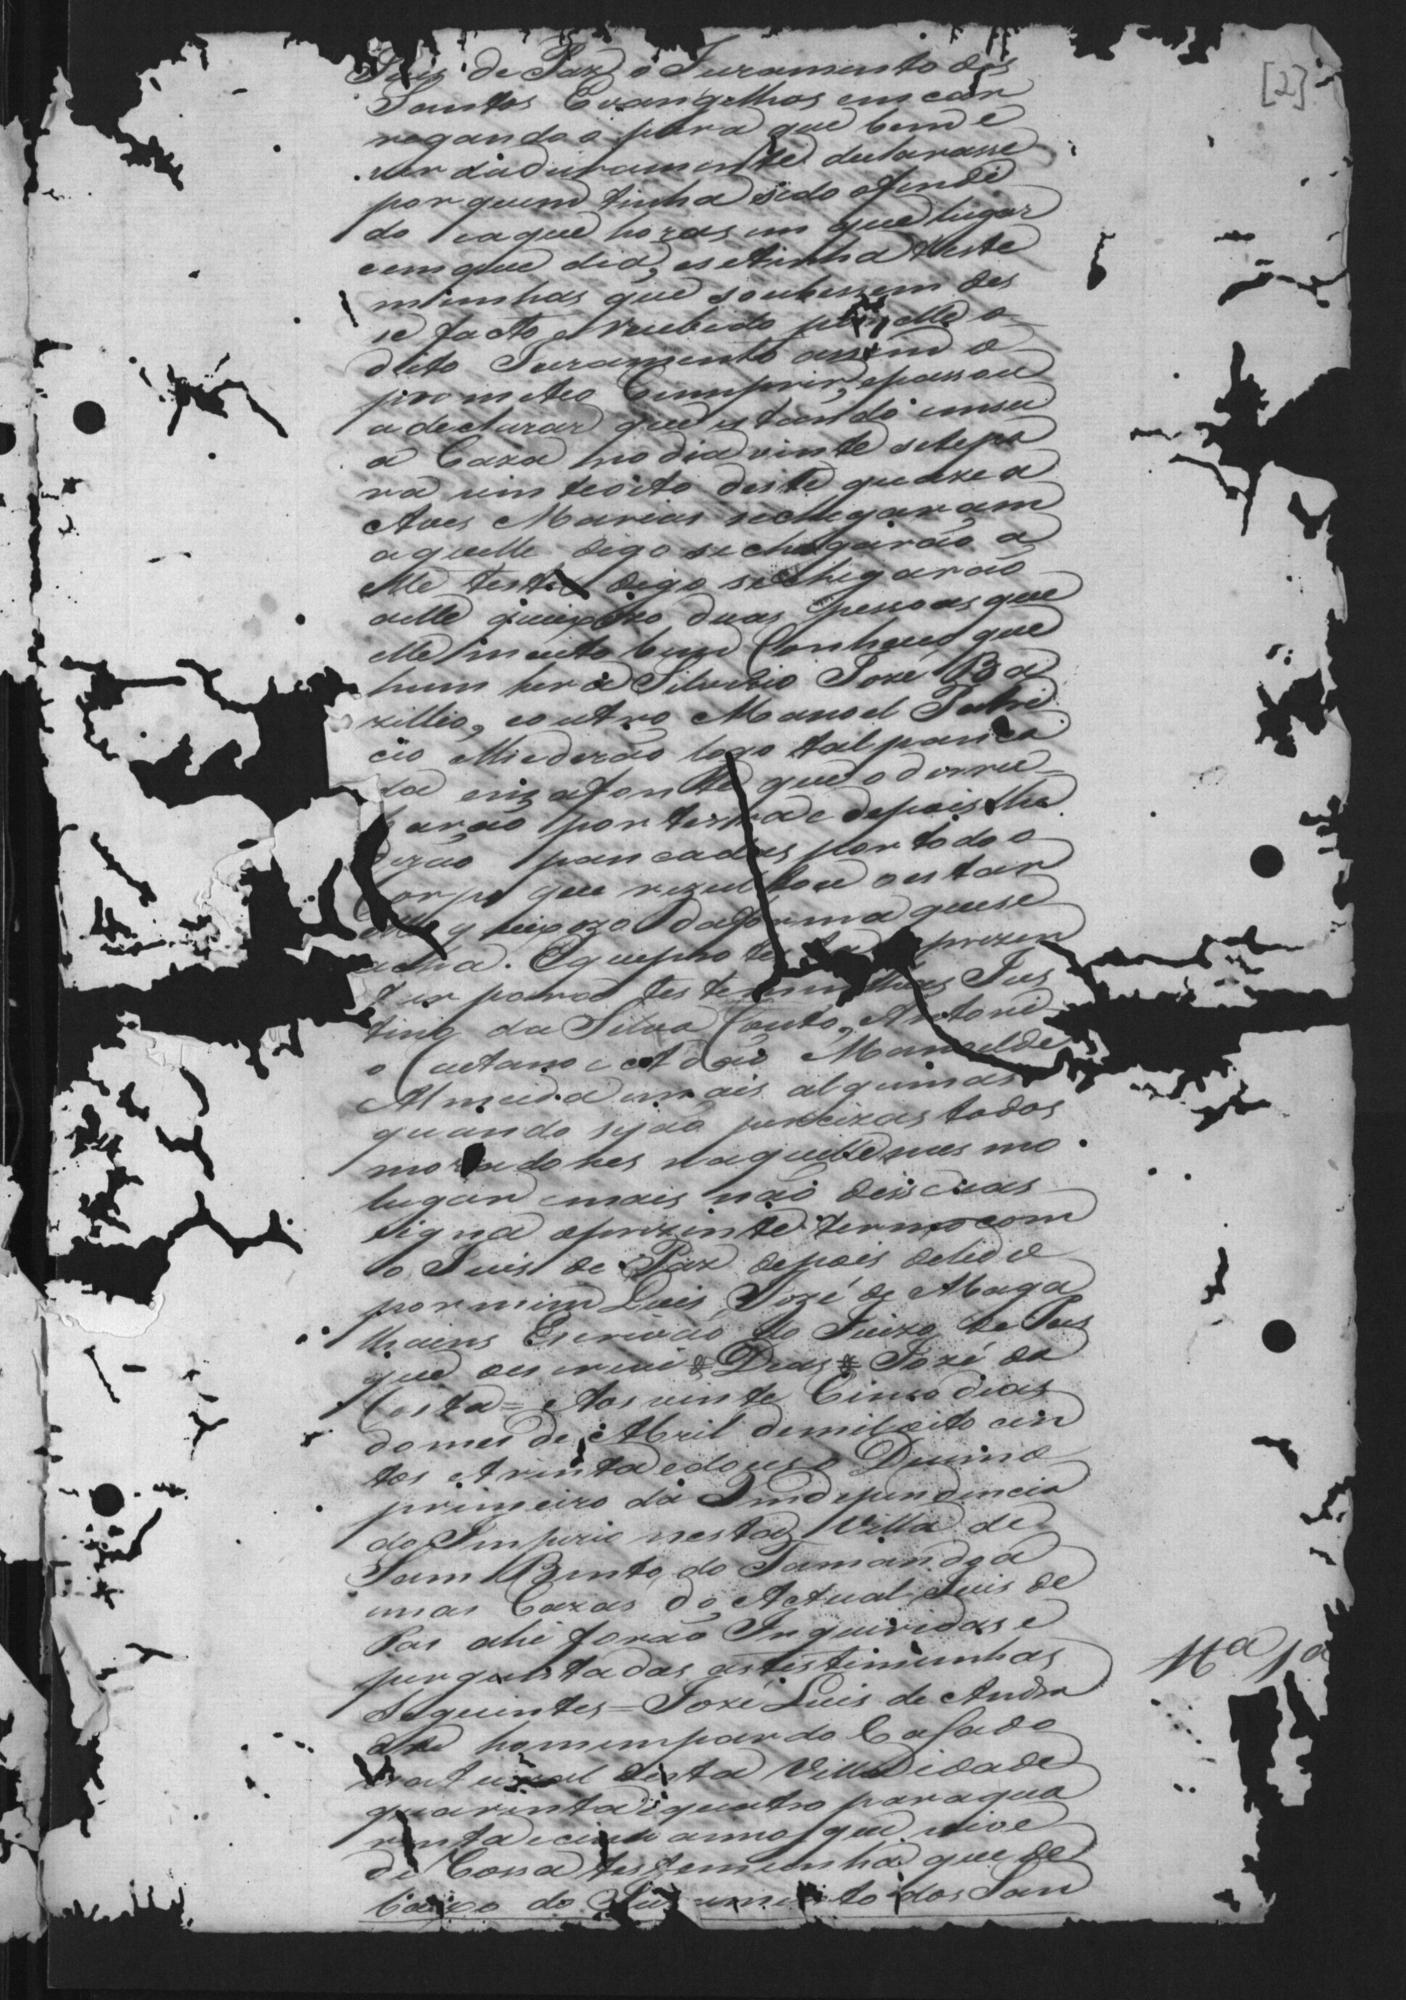 [2]
Juis de Paz o Juramento dos
Santos Evangelhos encar
regando o para que bem e
verdadeiramente declarasse
por quem tinha sido ofendi
do e a que horas em que lugar
e em que dia, e se tinha teste
munhas que soubessem des
se facto e recebido por elle o
dito Juramento assim o
prometeo Cumprir, e passou
a declarar que estando em su
a Caza no dia vinte sete pa
ra vinte oito deste quaze a
Aves Marias se chegaram
aquelle digo se chegarão a
elle test digo se chegarão
a elle queixozo duas pessoas que
elle muito bem Conheceo que
hum hera Silverio Jozé Ba
zillio, e outro Manoel Patri
cio e lhe derão logo tal panca
da em a fonte que o derru
barão por terra e depois lhe
derão pancadas por todo o
Corpo que rezultou o estar
elle queixozo da forma que se
acha. E que protesta aprezen
tar para testemunhas Jus
tino da Silva Couto, Antoni
o Caetano e Adão Manoel de
Almeida e mais algumas
quando sejão precizas todos
moradores naquelle mesmo
lugar e mais não disse e as
signa o prezente termo com
o Juis de Paz depois de lido
por mim Luis Jozé de Maga
lhains Escrivão do Juizo de Pas
que o escrevi Dias Jozé da
Costa = Aos vinte Cinco dias
do mes de Abril de mil oito cen
tos e trinta e dous o Decimo
primeiro da Independencia
do Imperio nesta Villa de
Sam Bento do Tamandoa
em as Cazas do Actual Juis de
Pas ahi forão Inquiridas e
perguntadas as testemunhas
seguintes = Jozé Luis de Andra
de homem pardo Casado
natural desta Villa de idade
quarenta e quatro para qua
renta e cinco annos que vive
de testemunha que de
baixo do Juramento dos San
Ttª 1ª